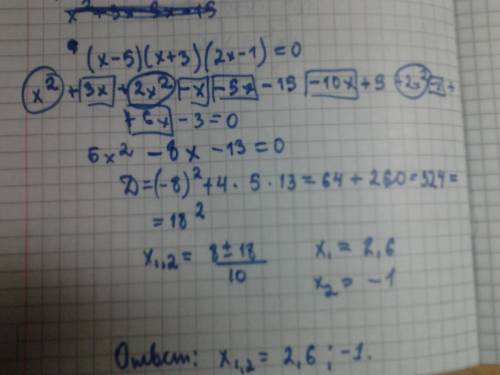 (x-5)(x+3)(2x-1)=0
x² + 3x + 2x² - x - 5x - 15 - 10x + 5 + 2x² - x +
+ 6x - 3 = 0
5x² - 8x - 13 = 0
D = (-8)² + 4 · 5 · 13 = 64 + 260 = 324 =
= 18²
x₁,₂ = 8 ± 18 / 10 x₁ = 2,6
x₂ = -1
Ответ: x₁,₂ = 2,6 ; -1.